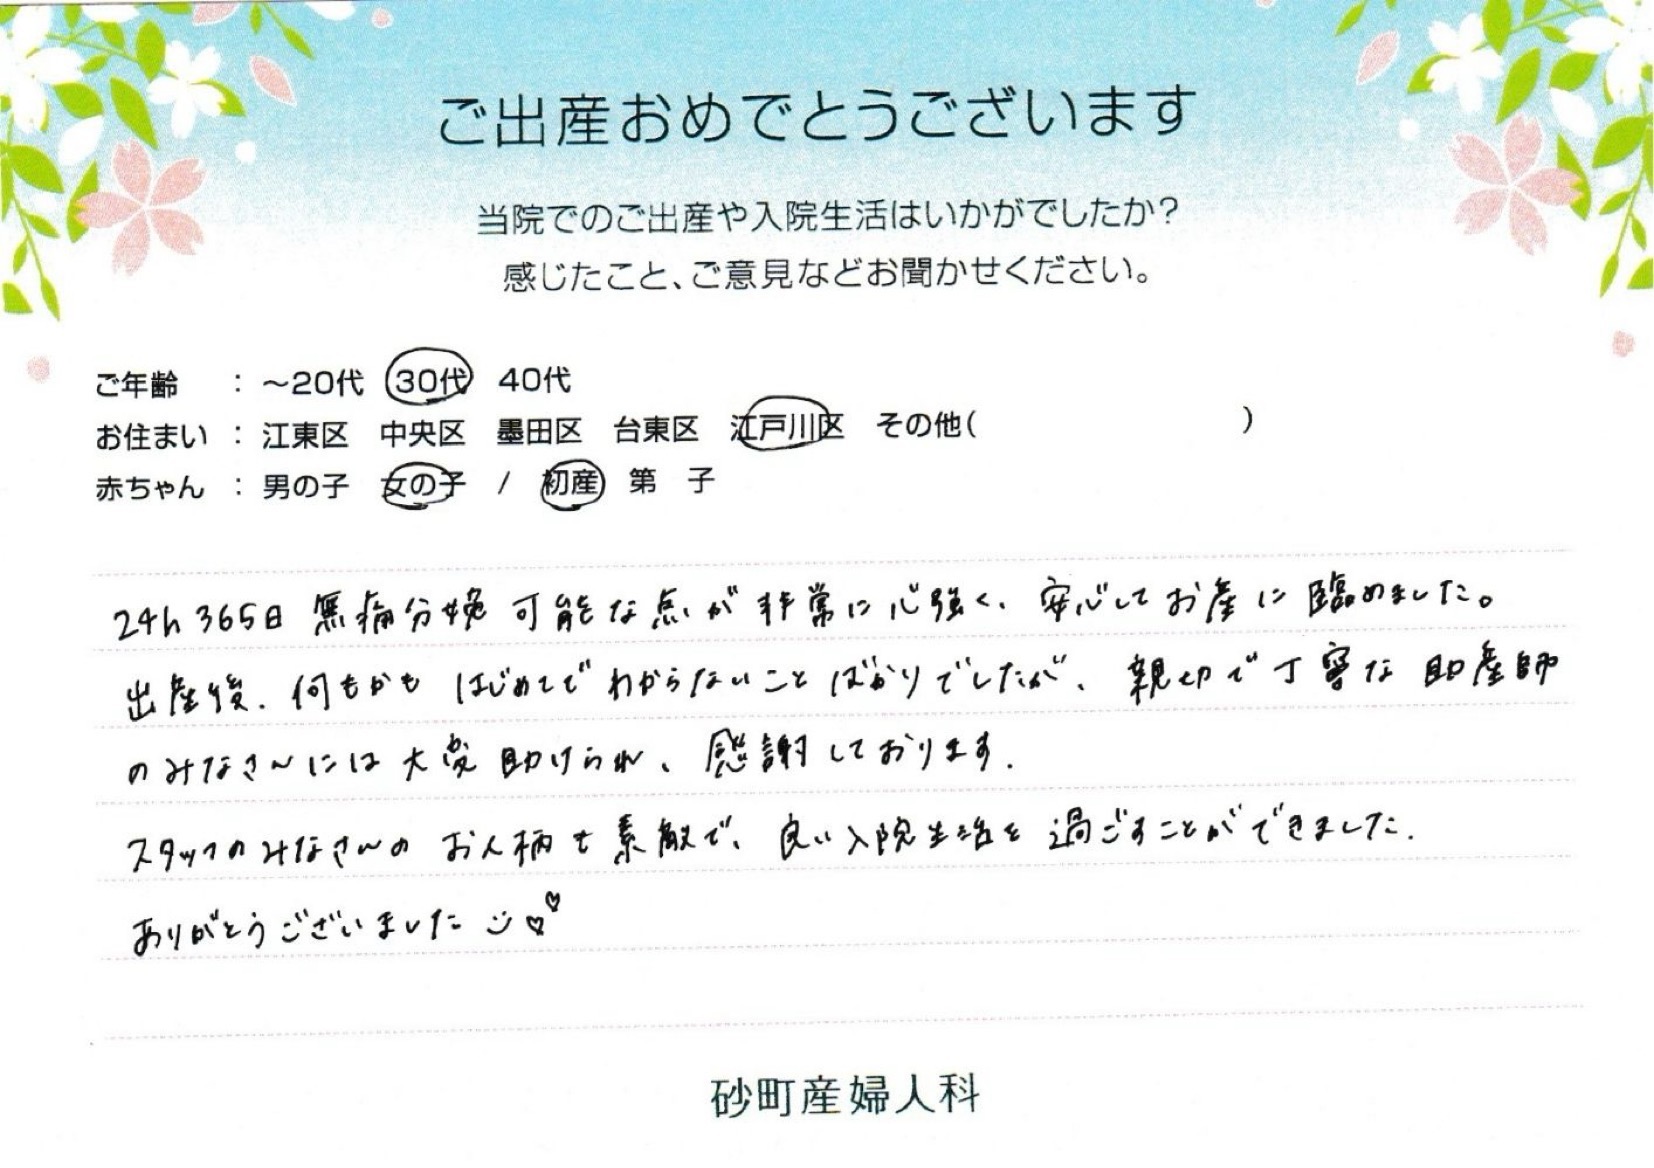 ご出産おめでとうございます
当院でのご出産や入院生活はいかがでしたか?
感じたこと、ご意見などお聞かせください。
ご年齢 : ～20代 30代 40代
お住まい : 江東区 中央区 墨田区 台東区 江戸川区 その他( )
赤ちゃん : 男の子 女の子 / 初産 第 子
24h 365日 無痛分娩 可能な点が非常に心強く、安心してお産に臨めました。
出産後、何もかもはじめてでわからないことばかりでしたが、親切で丁寧な助産師
のみなさんには大変助けられ、感謝しております.
スタッフのみなさんのお人柄も素敵で、良い入院生活を過ごすことができました.
ありがとうございました ☺♡♡
砂町産婦人科